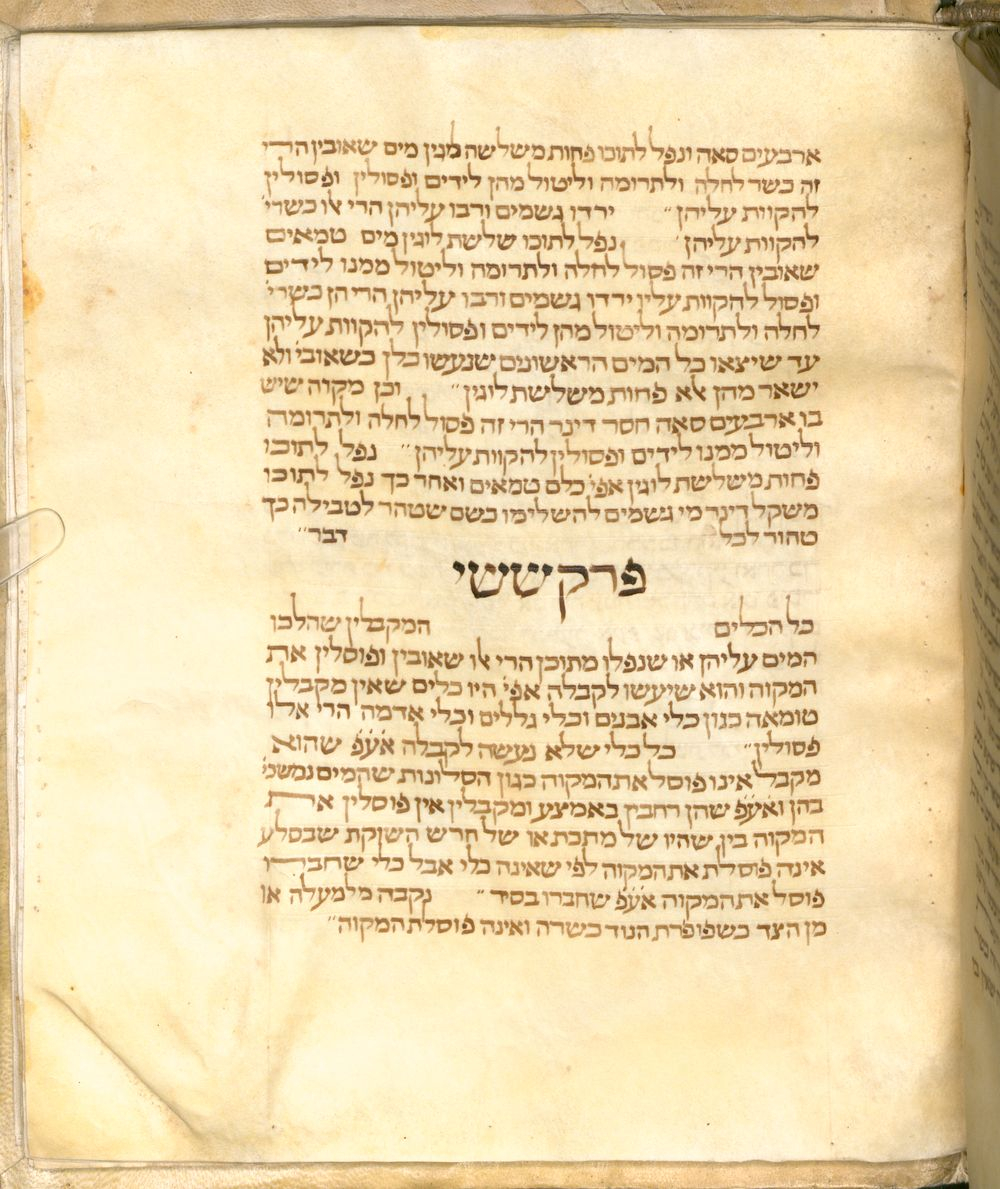 ארבעים סאה ונפל לתוכו פחות משלשה לוגין מים שאובין הרי
זה כשר לחלה ולתרומה וליטול מהן לידים ופסולין ופסולין
להקוות עליהן״ ירדו גשמים ורבו עליהן הרי אלו כשרי׳
להקוות עליהן׳ נפל לתוכו שלשת לוגין מים טמאים
שאובין הרי זה פסול לחלה ולתרומה וליטול ממנו לידים
ופסול להקוות עלין ירדו גשמים ורבו עליהן הרי הן כשרי׳
לחלה ולתרומה וליטול מהן לידים ופסולין להקוות עליהן
עד שיצאו כל המים הראשונים שנעשו כלן כשאובי׳ ולא
ישאר מהן אלא פחות משלשת לוגין״ וכן מקוה שיש
בו ארבעים סאה חסר דינר הרי זה פסול לחלה ולתרומה
וליטול ממנו לידים ופסולין להקוות עליהן״ נפל לתוכו
פחות משלשת לוגין אפי׳ כלם טמאים ואחר כך נפל לתוכו
משקל דינר מי גשמים להשלימו כשם שטהר לטבילה כך
טהור לכל דבר״
פרק ששי
כל הכלים המקבלין שהלכו
המים עליהן או שנפלו מתוכן הרי אלו שאובין ופוסלין את
המקוה והוא שיעשו לקבלה אפי׳ היו כלים שאין מקבלין
טומאה כגון כלי אבנים וכלי גללים וכלי אדמה הרי אלו
פסולין״ כל כלי שלא נעשה לקבלה אעפ שהוא
מקבל אינו פוסל את המקוה כגון הסלונות שהמים נמשכי׳
בהן ואעפ שהן רחבין באמצע ומקבלין אין פוסלין את
המקוה בין שהיו של מתכת או של חרש השוקת שבסלע
אינה פוסלת את המקוה לפי שאינה כלי אבל כלי שחברו
פוסל את המקוה אעפ שחברו בסיד״ נקבה מלמעלה או
מן הצד כשפופרת הנוד כשרה ואינה פוסלת המקוה״